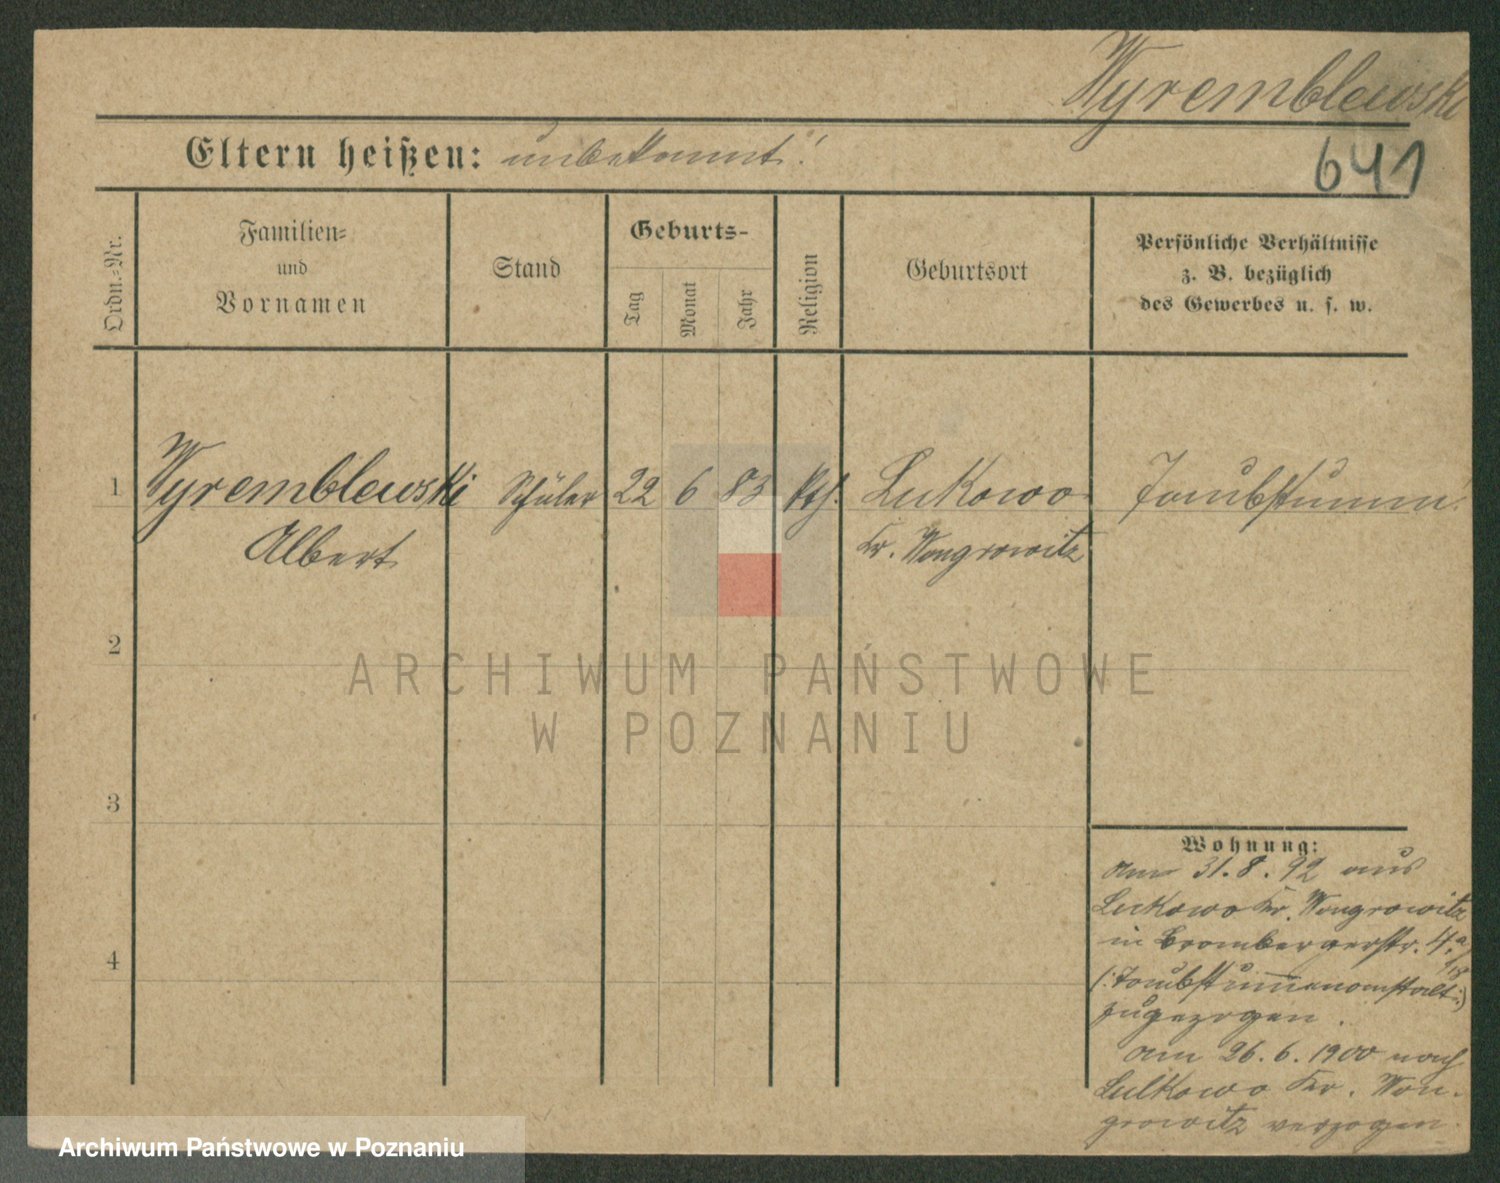 Wyremblewski
Eltern heißen: unbekannt!
641
Ordn.-Nr.
Familien-
und
Vornamen
Stand
Geburts-
Tag
Monat
Jahr
Religion
Geburtsort
Persönliche Verhältnisse
z. B. bezüglich
des Gewerbes u. s. w.
1 Wyremblewski Schüler 22 6 83 kth. Lukowo Taubstumm!
Albert Kr. Wongrowitz
2
ARCHIWUM PAŃSTWOWE
W POZNANIU
3
Wohnung:
am 31.8.92 aus
Lukowo Kr. Wongrowitz
4
in Brombergerstr. 4a
(:Taubstummenanstalt:)
zugezogen.
am 26.6.1900 nach
Lulkowo Kr. Won-
growitz verzogen.
Archiwum Państwowe w Poznaniu